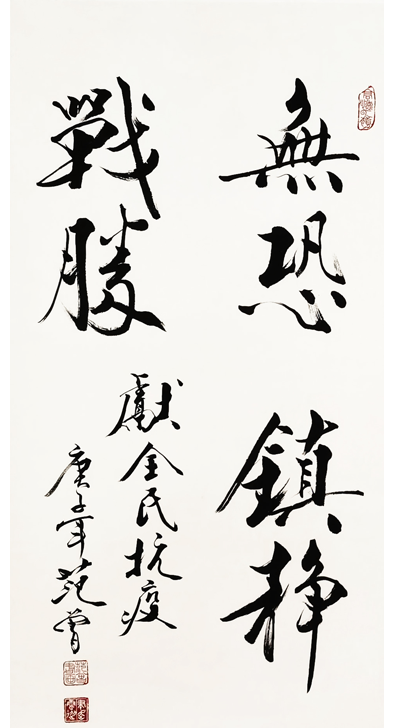 無恐鎮静
戰勝
獻全民抗疫
庚子年范曾